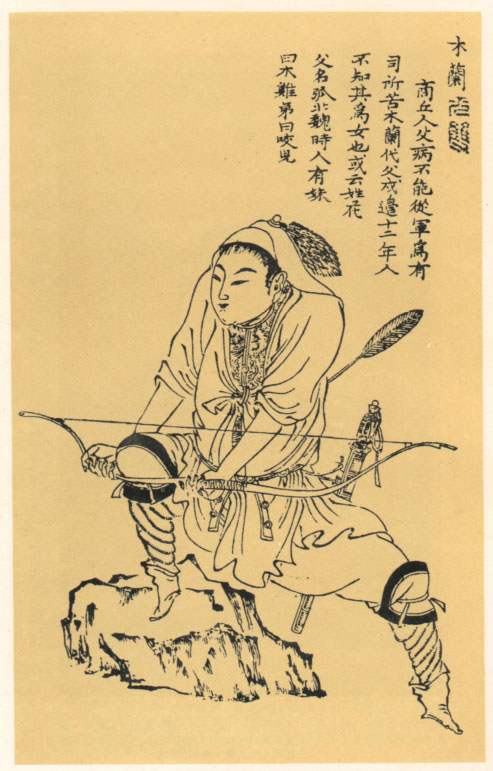 木蘭
商丘人父病不能從軍為有
司所苦木蘭代父戍邊十二年人
不知其為女也或云姓花
父名弧北魏時人有妹
曰木難弟曰咬兒